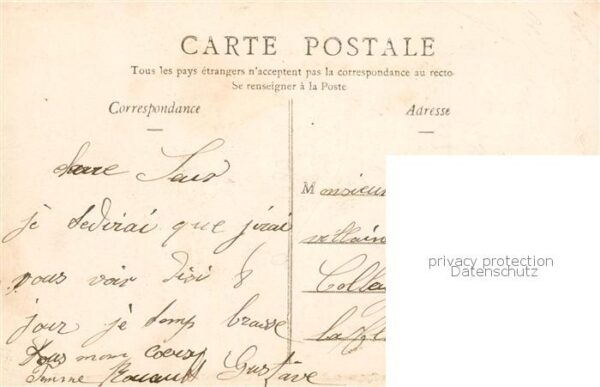 CARTE POSTALE
Tous les pays étrangers n'acceptent pas la correspondance au recto
Se renseigner à la Poste
Correspondance
chere Seur
je tedirai que jirai
vous voir disi 8
jour je temp brasse
tous mon coeur
Gustave
Adresse
Monsieur
privacy protection
Datenschutz